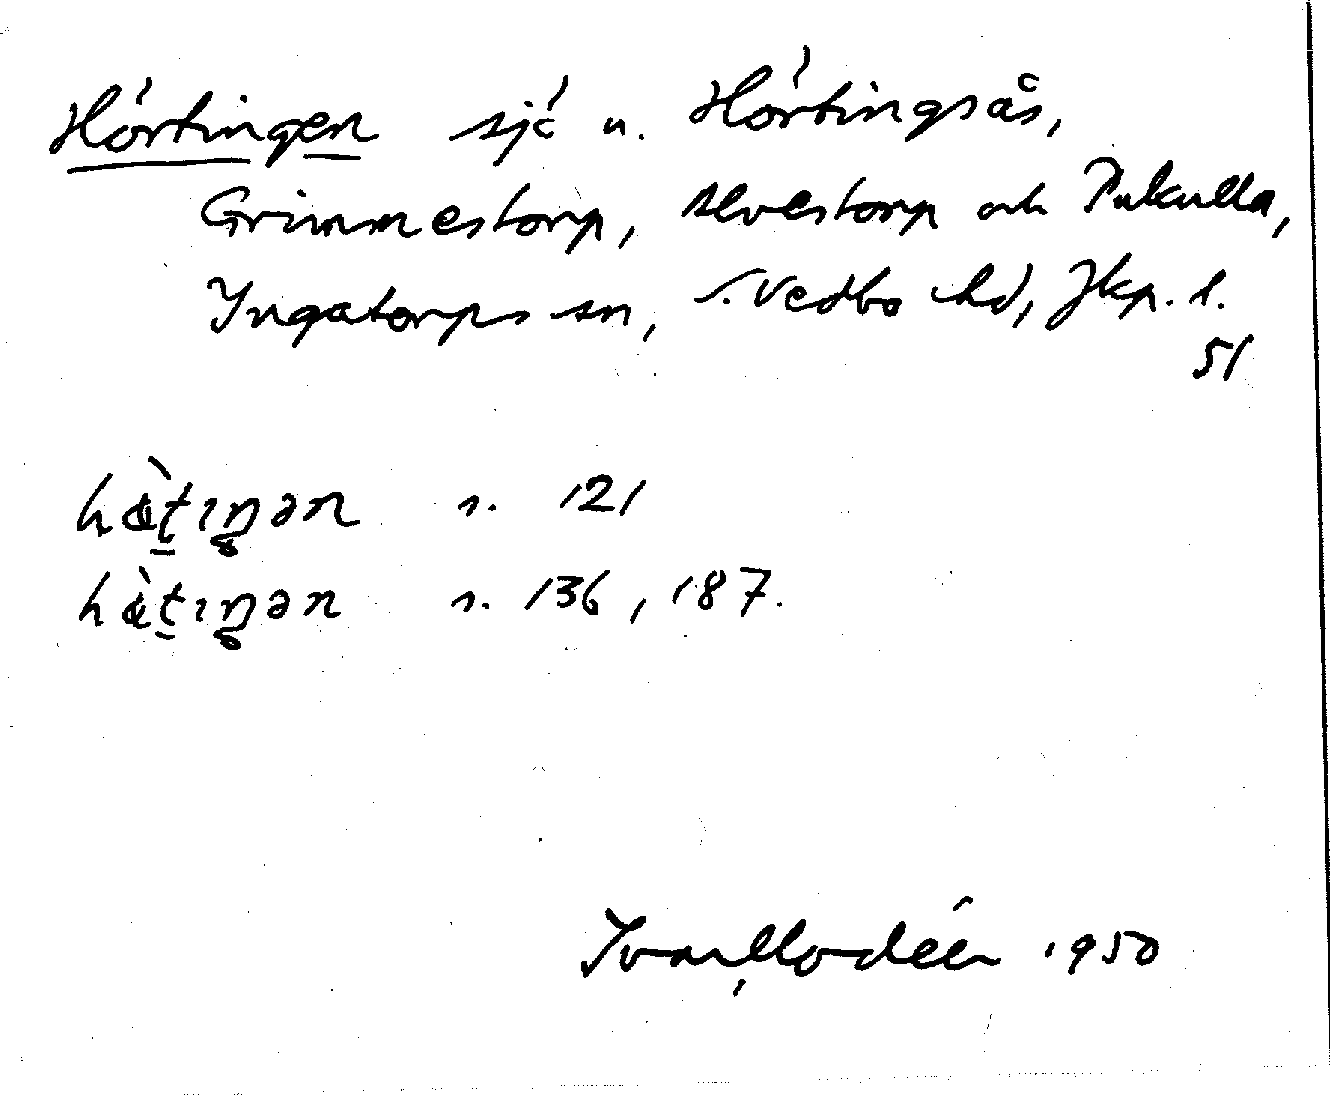 Hörtingen sjö u. Hörtingsås,
Grimmestorp, Alvestorp och Pukulla,
Ingatorps sn, S. Vedbo hd, Jkp. l.
51
s. 121
s. 136, 187.
Ivar Modéer 1950